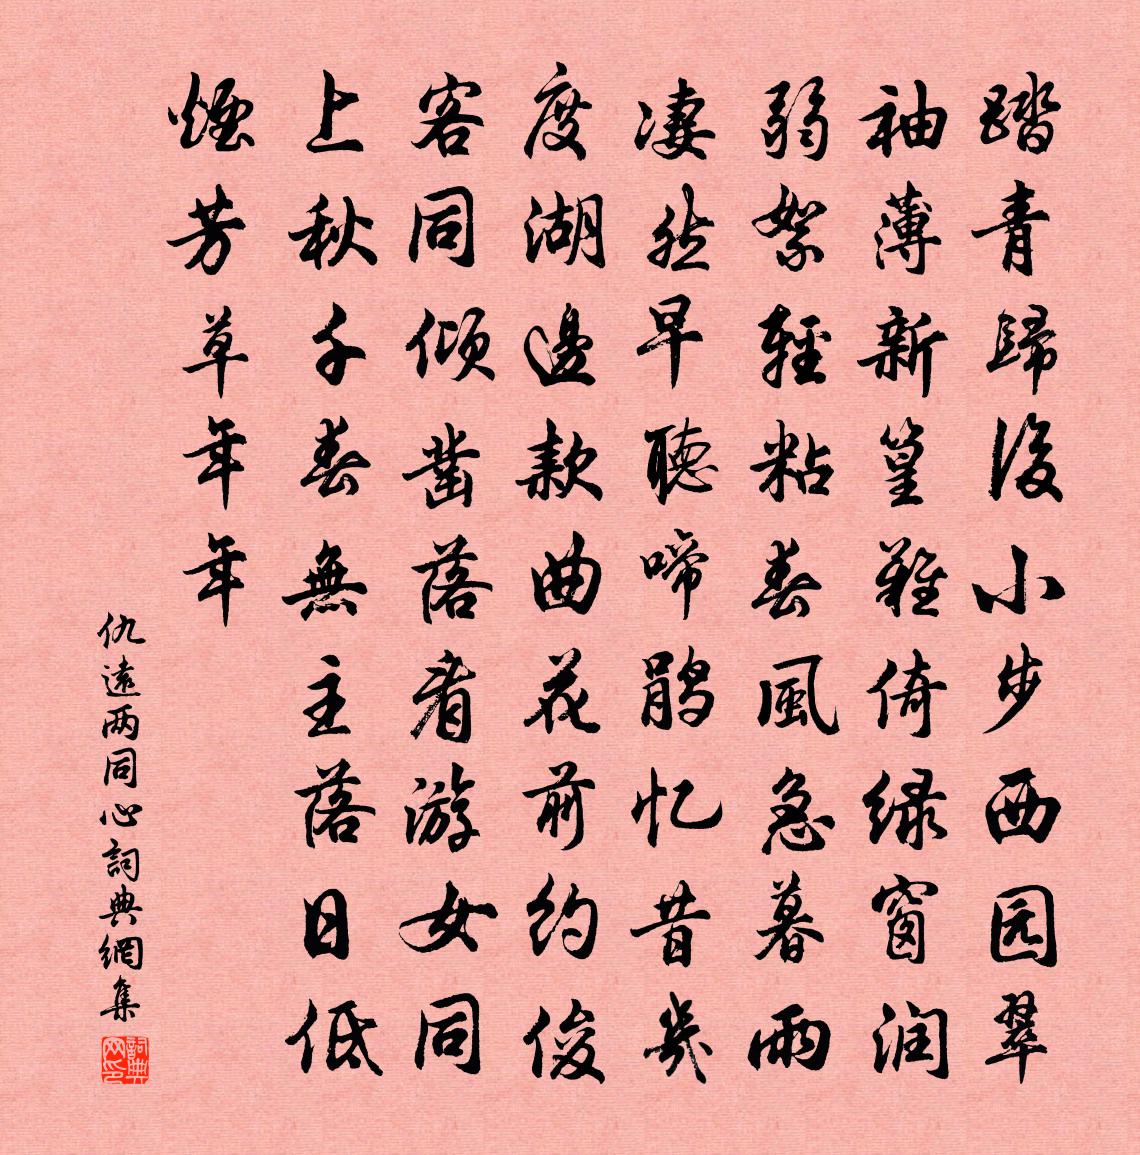 踏青歸後小步西园翠
袖薄新篁難倚绿窗润
弱絮輕粘春風急暮雨
凄然早聽啼鹃忆昔幾
度湖邊款曲花前約俊
客同倾凿落看游女同
上秋千春無主落日低
煙芳草年年
仇遠两同心詞典網集
詞典网印